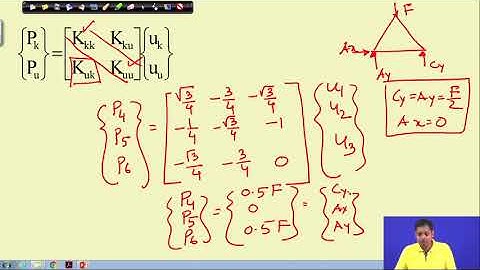 {P_k P_u} = [K_kk K_ku K_uk K_uu] {u_k u_u}
F
Ax
Ay
Cy
Cy = Ay = F/2
Ax = 0
{P4 P5 P6} = [√3/4 -3/4 -√3/4
-1/4 -√3/4 -1
-√3/4 -3/4 0] {u1 u2 u3}
{P4 P5 P6} = {0.5F 0 0.5F} = {Cy Ax Ay}